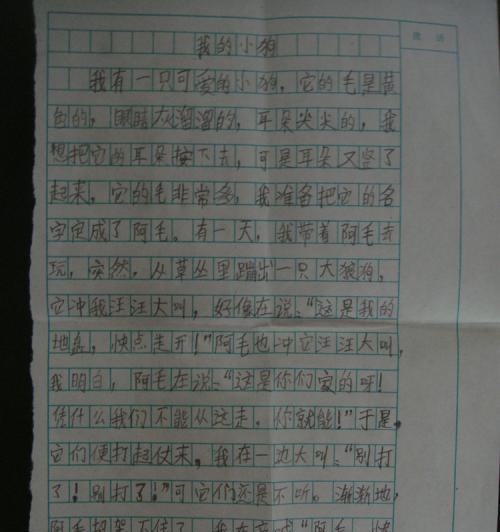 我的小狗
批语
我有一只可爱的小狗，它的毛是黄
色的，眼睛灰溜溜的，耳朵尖尖的，我
想把它的耳朵按下去，可是耳朵又竖了
起来，它的毛非常多，我准备把它的名
字定成了阿毛。有一天，我带着阿毛去
玩，突然，从草丛里蹦出一只大狼狗，
它冲我汪汪大叫，好像在说："这是我的
地盘，快点走开！"阿毛也冲它汪汪大叫，
我明白，阿毛在说："这是你们家的呀！
凭什么我们不能从这走，你就能！"于是，
它们便打起仗来，我在一边大叫："别打
了！别打了！"可它们还是不听。渐渐地，
阿毛招架不住了，我在